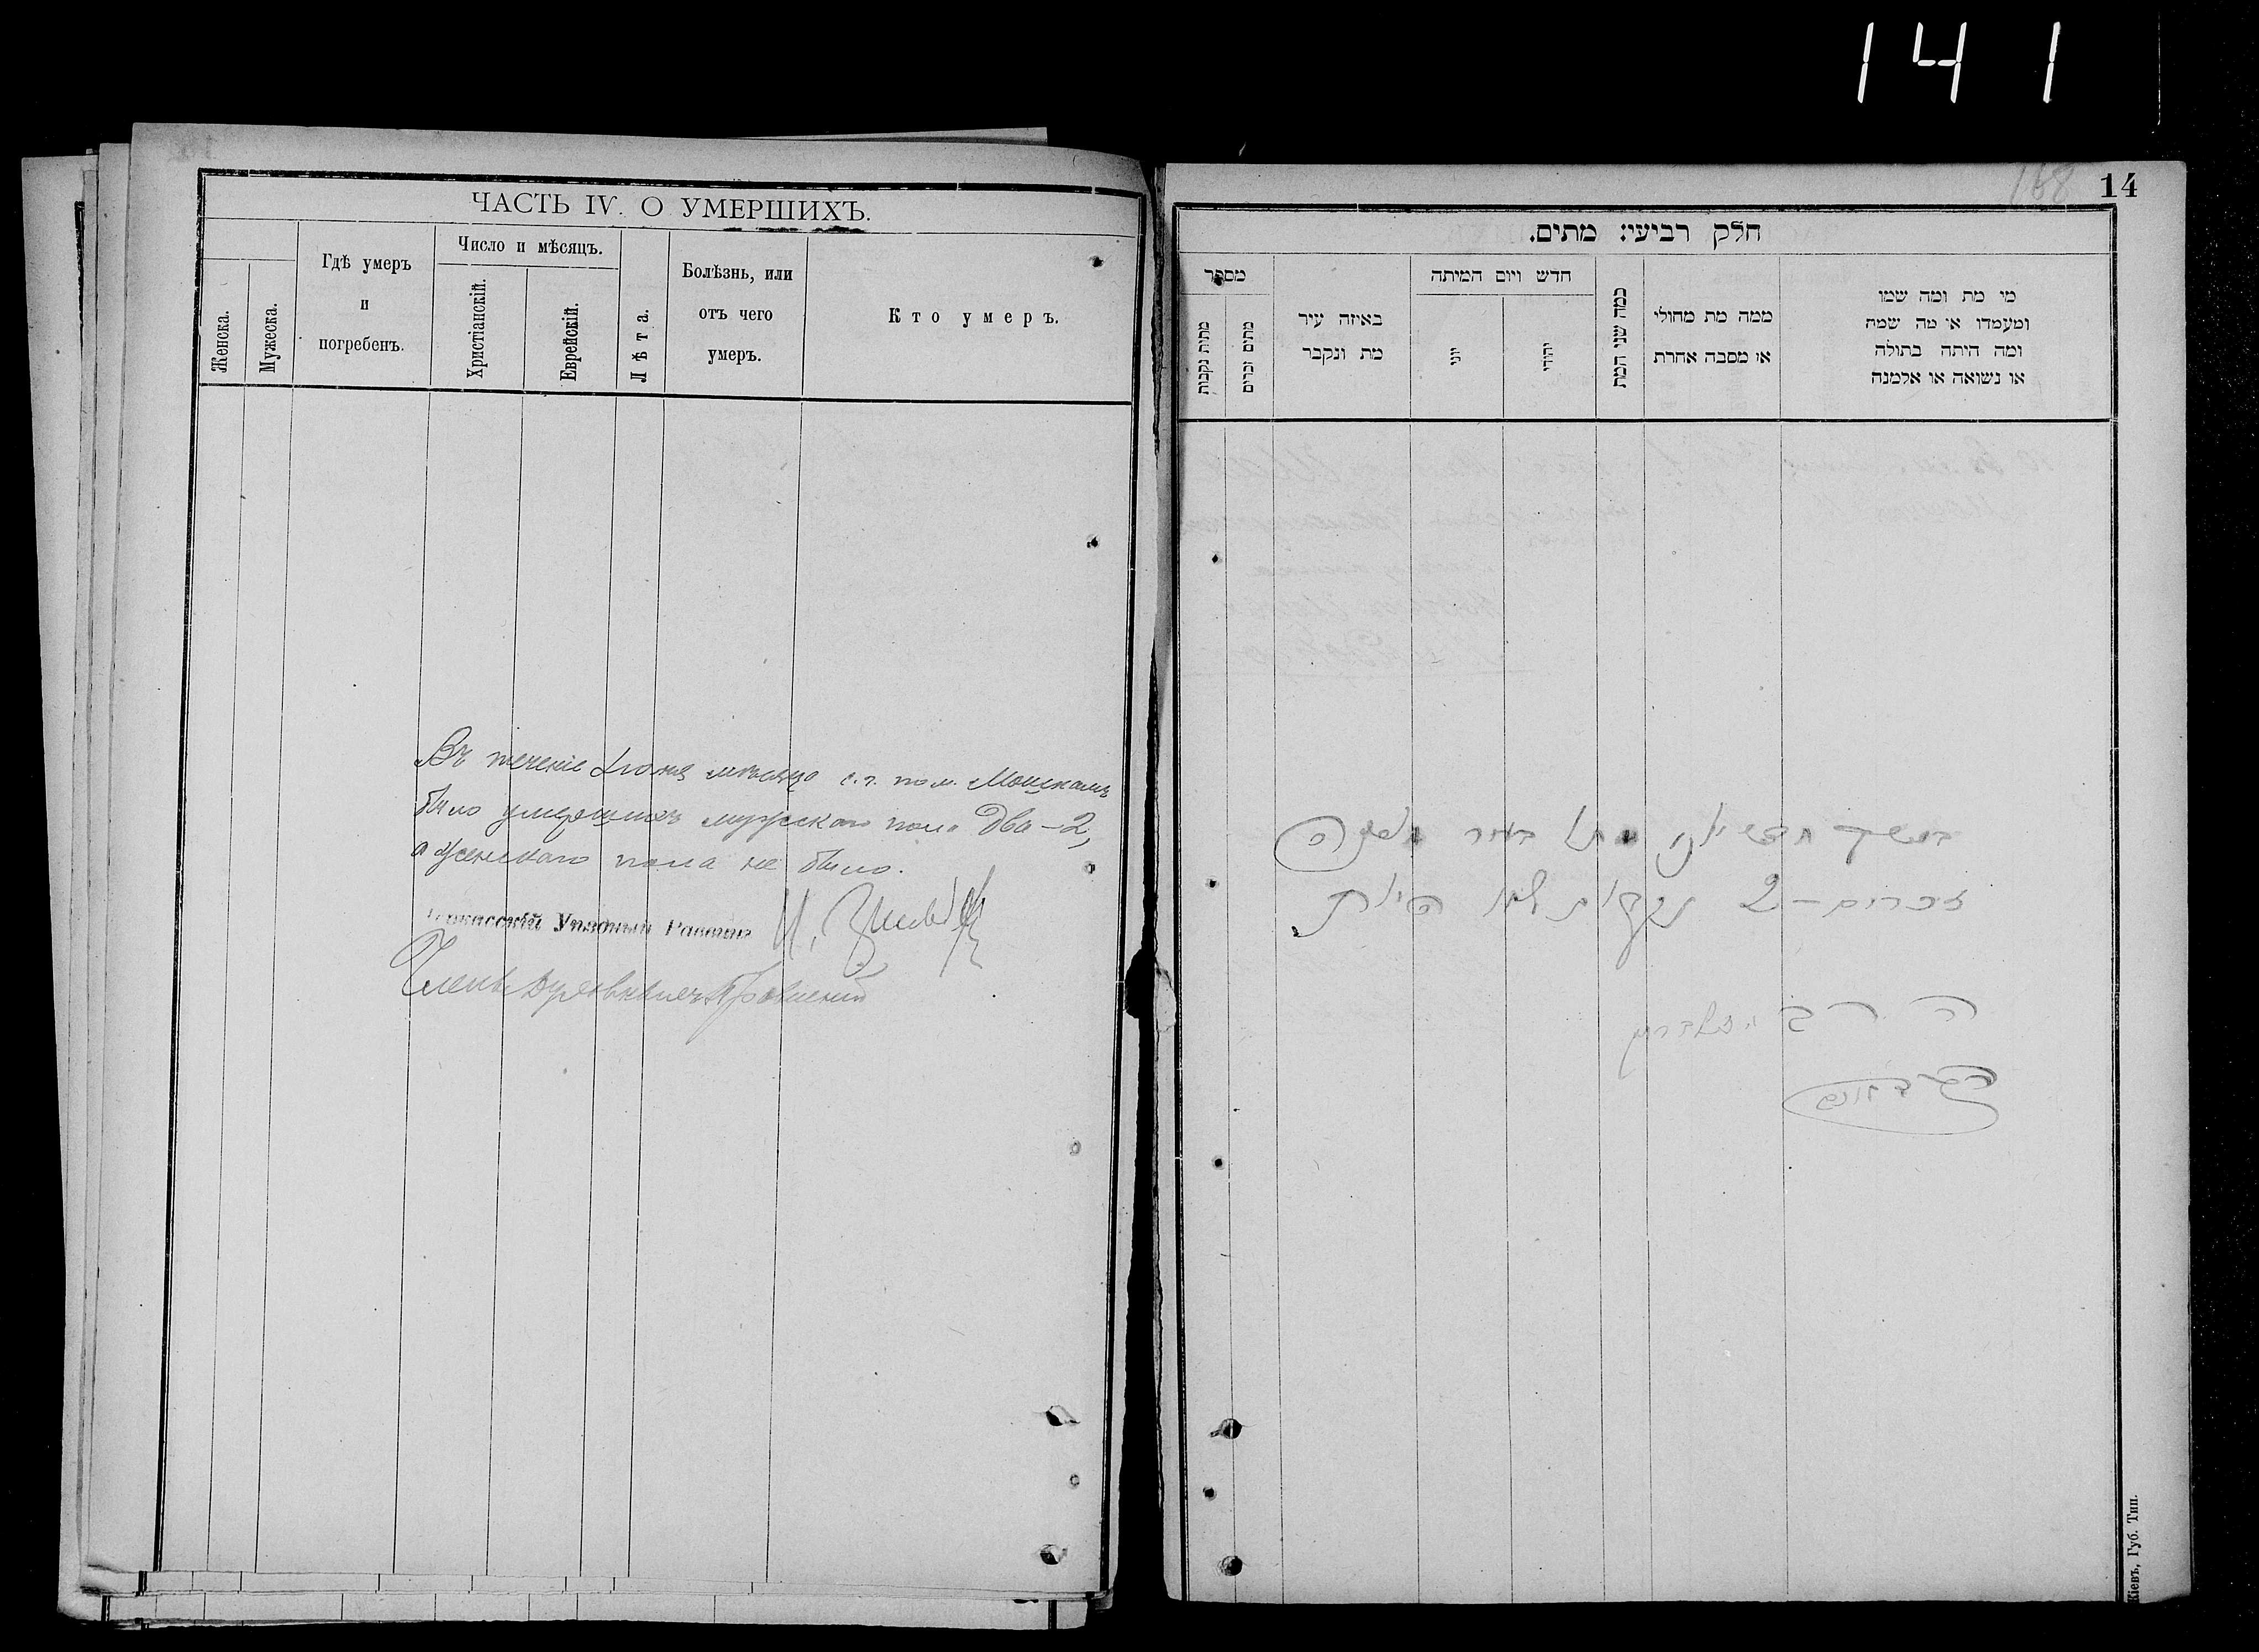 141
ЧАСТЬ IV. О УМЕРШИХЪ.
Женска.
Мужеска.
Гдѣ умеръ
и
погребенъ.
Число и мѣсяцъ.
Христіанскій.
Еврейскій.
Лѣта.
Болѣзнь, или
отъ чего
умеръ.
Кто умеръ.
Въ теченіе Іюня мѣсяца с. г. по м. Мошнамъ
было умершихъ мужскаго пола два – 2,
а женскаго пола не было.
Уѣздный Раввинъ
Членъ Духовнаго Правленія
168
14
חלק רביעי: מתים.
מספר
מתות נקבות
מתים זכרים
באיזה עיר
מת ונקבר
חדש ויום המיתה
יוני
יהודי
כמה שני המת
ממה מת מחולי
או מסבה אחרת
מי מת ומה שמו
ומעמדו או מה שמה
ומה היתה בתולה
או נשואה או אלמנה
במשך חדש יוני מתו בעיר
זכרים – 2 נקבות לא היות
הרב
Кіевъ, Губ. Тип.